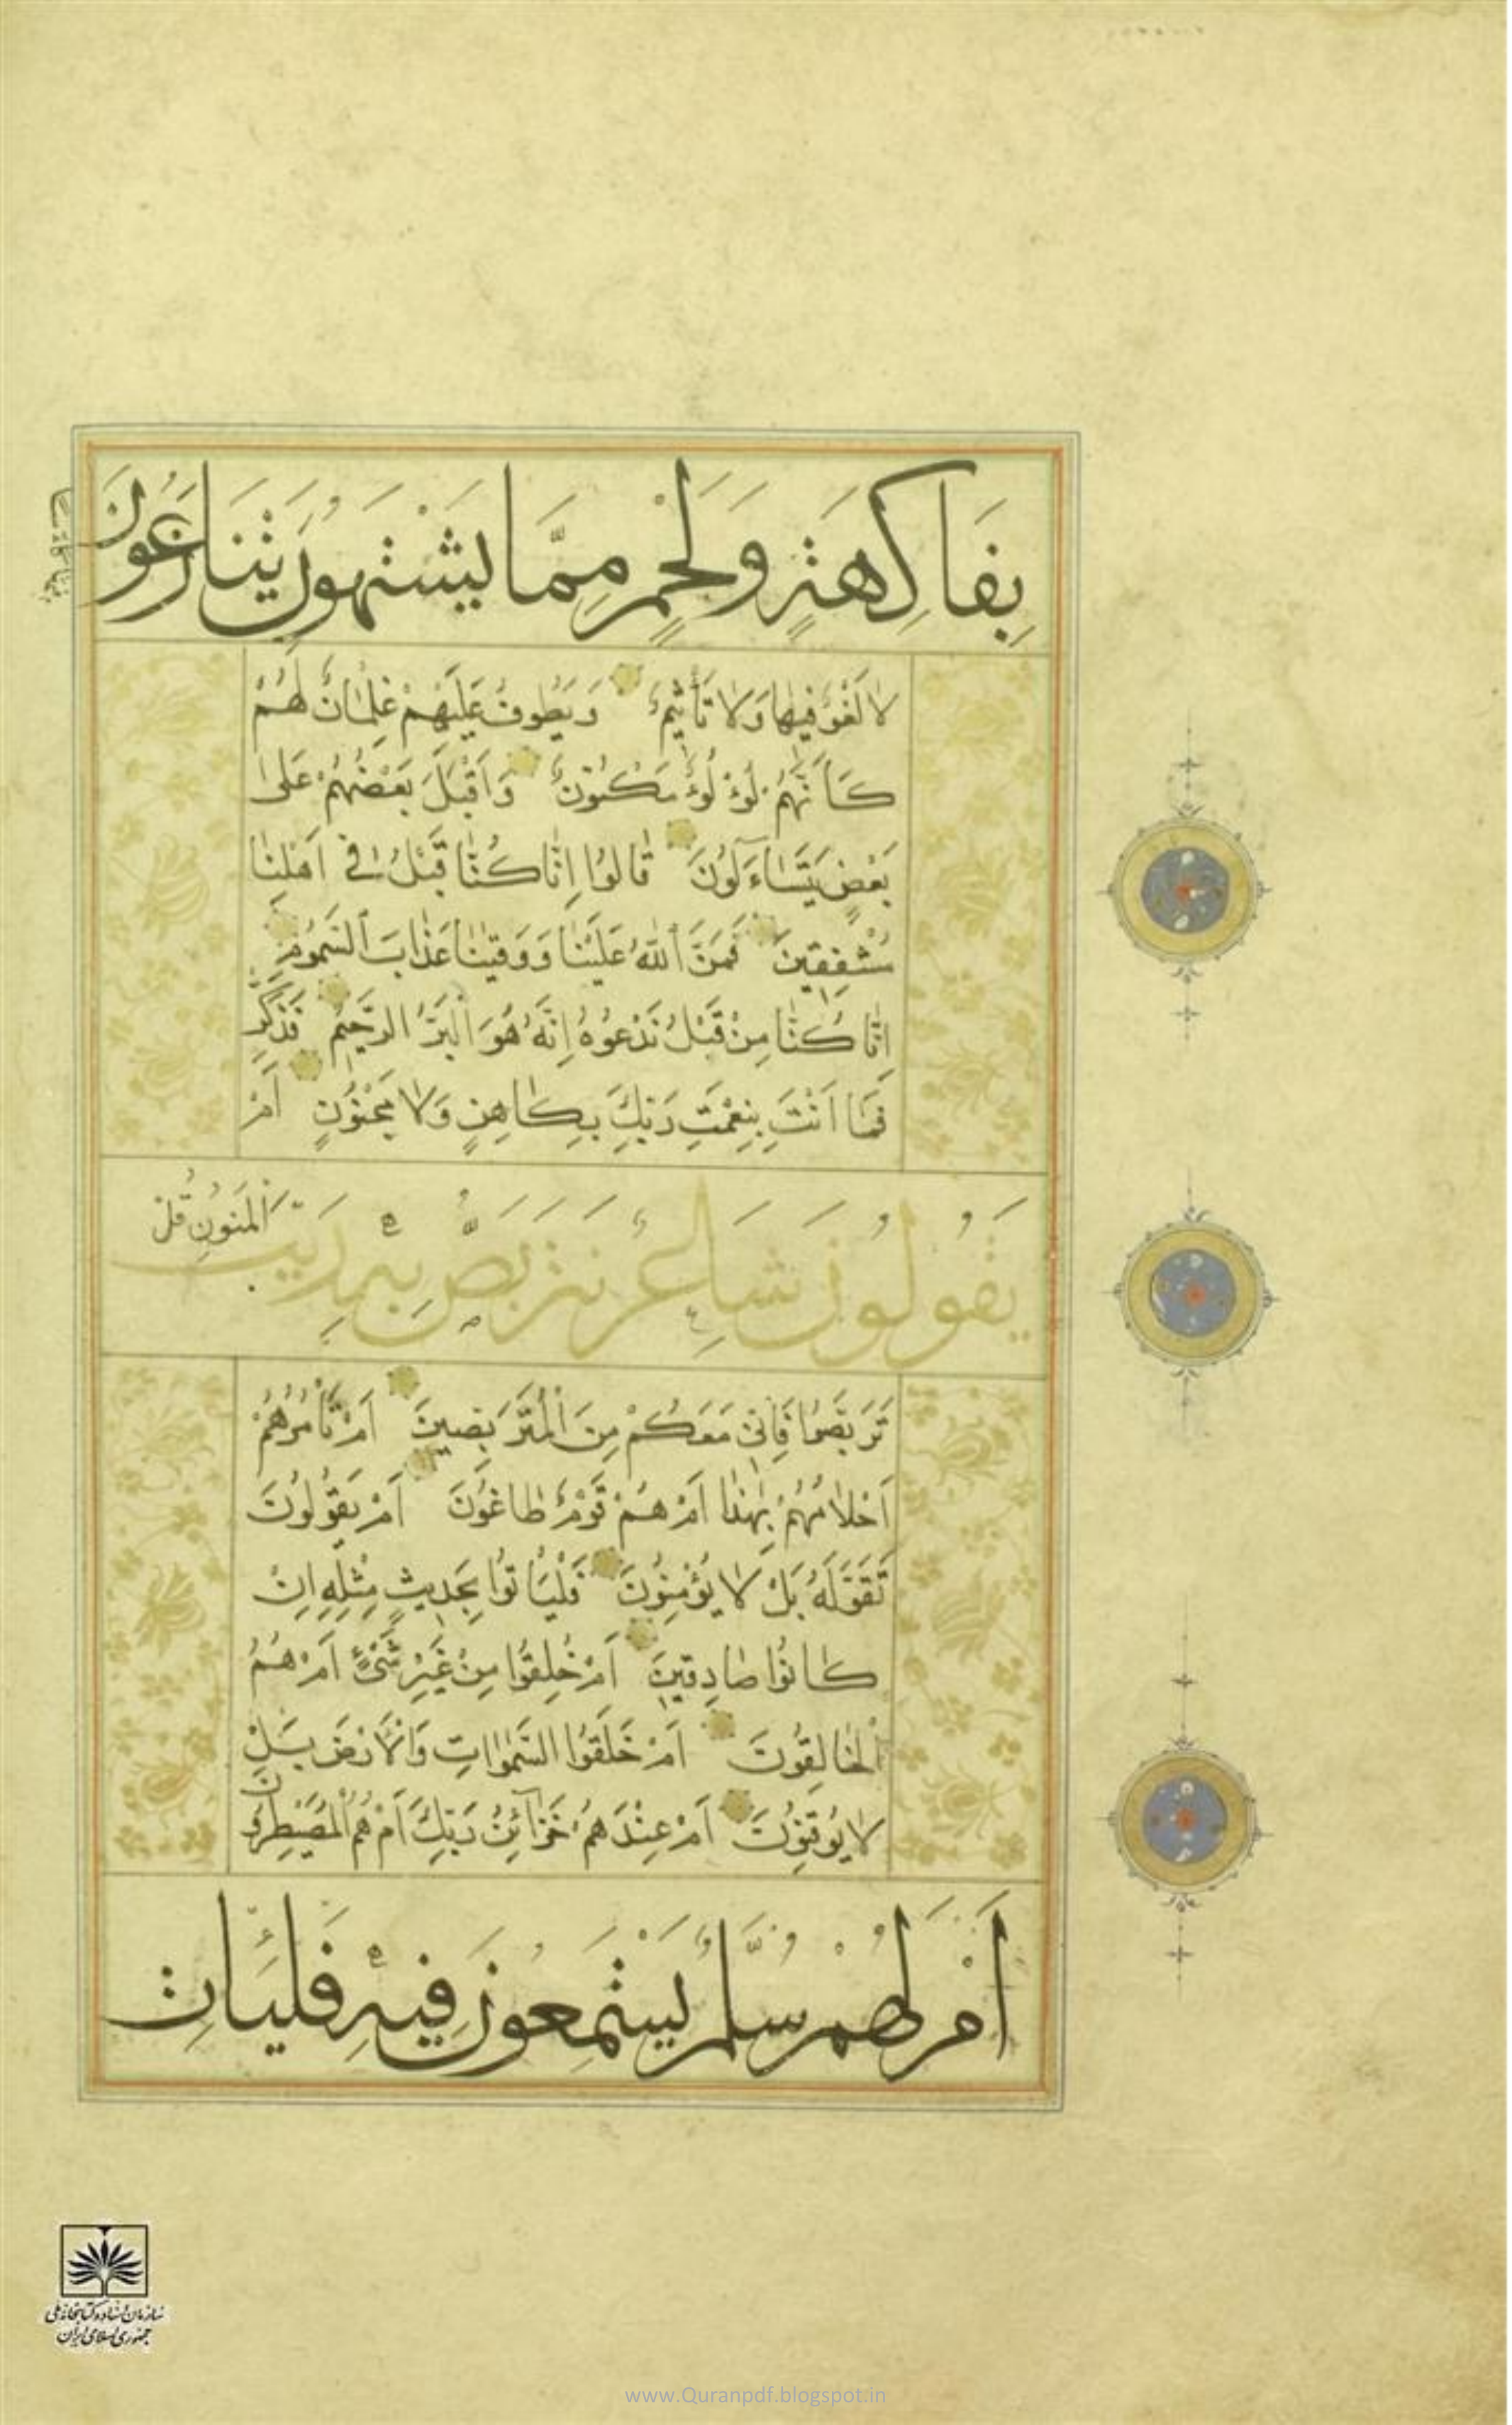 بِفَاكِهَةٍ وَلَحْمٍ مِمَّا يَشْتَهُونَ يَتَنَازَعُونَ
لَا لَغْوٌ فِيهَا وَلَا تَأْثِيمٌ وَيَطُوفُ عَلَيْهِمْ غِلْمَانٌ لَهُمْ
كَأَنَّهُمْ لُؤْلُؤٌ مَكْنُونٌ وَأَقْبَلَ بَعْضُهُمْ عَلَى
بَعْضٍ يَتَسَاءَلُونَ قَالُوا إِنَّا كُنَّا قَبْلُ فِي أَهْلِنَا
مُشْفِقِينَ فَمَنَّ اللّٰهُ عَلَيْنَا وَوَقٰينَا عَذَابَ السَّمُومِ
إِنَّا كُنَّا مِنْ قَبْلُ نَدْعُوهُ إِنَّهُ هُوَ الْبَرُّ الرَّحِيمُ فَذَكِّرْ
فَمَا أَنْتَ بِنِعْمَتِ رَبِّكَ بِكَاهِنٍ وَلَا مَجْنُونٍ أَمْ
يَقُولُونَ شَاعِرٌ نَتَرَبَّصُ بِهِ رَيْبَ الْمَنُونِ قُلْ
تَرَبَّصُوا فَإِنِّي مَعَكُمْ مِنَ الْمُتَرَبِّصِينَ أَمْ تَأْمُرُهُمْ
أَحْلَامُهُمْ بِهٰذَا أَمْ هُمْ قَوْمٌ طَاغُونَ أَمْ يَقُولُونَ
تَقَوَّلَهُ بَلْ لَا يُؤْمِنُونَ فَلْيَأْتُوا بِحَدِيثٍ مِثْلِهِ إِنْ
كَانُوا صَادِقِينَ أَمْ خُلِقُوا مِنْ غَيْرِ شَيْءٍ أَمْ هُمُ
الْخَالِقُونَ أَمْ خَلَقُوا السَّمٰوَاتِ وَالْأَرْضَ بَلْ
لَا يُوقِنُونَ أَمْ عِنْدَهُمْ خَزَائِنُ رَبِّكَ أَمْ هُمُ الْمُصَيْطِرُونَ
أَمْ لَهُمْ سُلَّمٌ يَسْتَمِعُونَ فِيهِ فَلْيَأْتِ
سازمان اسناد و کتابخانه ملی
جمهوری اسلامی ایران
www.Quranpdf.blogspot.in